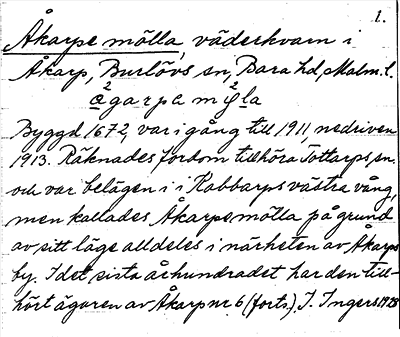 1.
Åkarps mölla, väderkvarn i
Åkarp, Burlövs sn, Bara hd, Malm. l.
Byggd 1672, var i gång till 1911, nedriven
1913. Räknades fordom tillhöra Tottarps sn.
och var belägen i i Kabbarps västra vång,
men kallades Åkarps mölla på grund
av sitt läge alldeles i närheten av Åkarps
by. I det sista århundradet har den till-
hört ägaren av Åkarp nr 6 (forts.) I. Ingers 1928